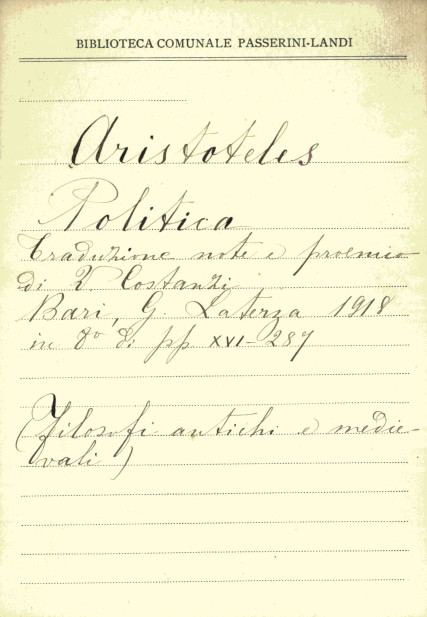 BIBLIOTECA COMUNALE PASSERINI-LANDI
Aristoteles
Politica
Traduzione note e proemio
di V. Costanzi
Bari, G. Laterza 1918
in 8º di pp XVI-287
(Filosofi antichi e medie-
vali)